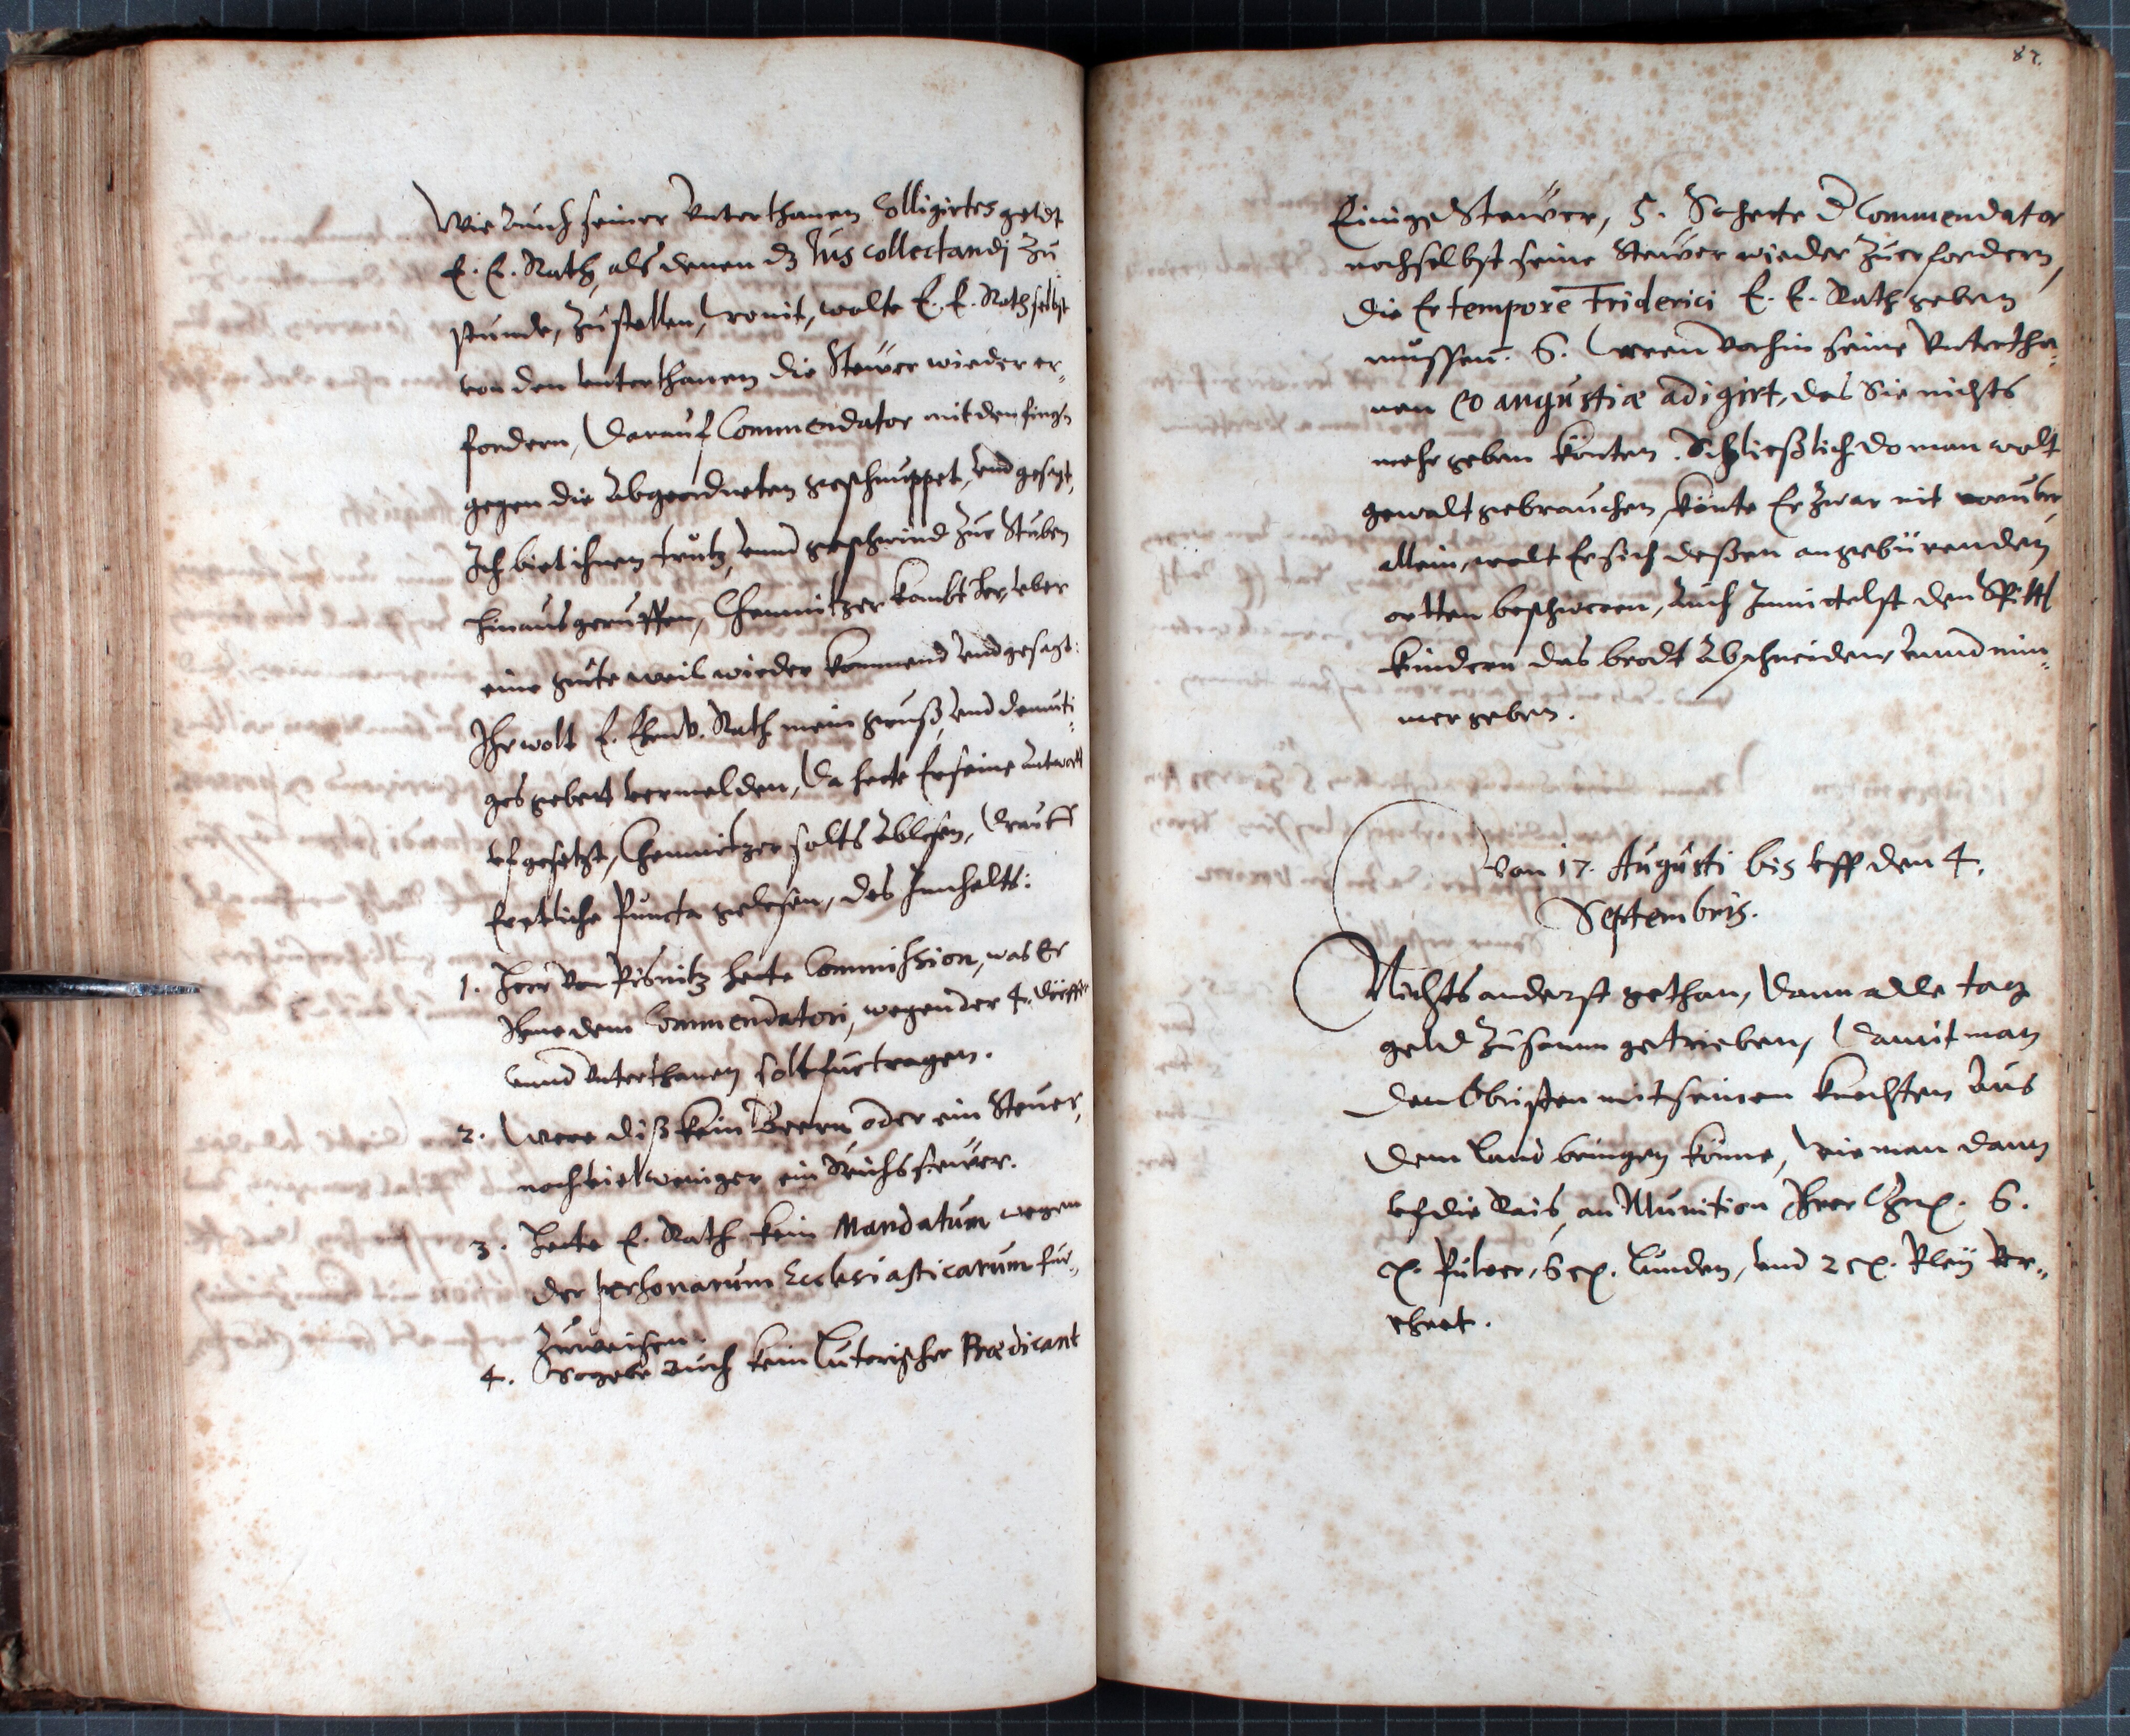 Wie auch seiner Unterthanen Colligirtes geldt
E. E. Rath, als denen dz Jus collectandj zu
stunde, zustellen, wo nit, wolte E. E. Rath selbst
von den Unterthanen die Steuer wieder er-
fordern, Darauf Commendator mit den fingern
gegen die Abgeordneten geschnuppet, und gesagt,
Ich biet ihnen trutz, unnd geschwind zur Stuben
hinaus geruffen, Chemnitzer kombt her, uber
eine gute weil wieder kommend und gesagt:
Ihr wolt E. Ehrnv. Rath mein gruß, und demuti-
ges gebett vermelden, Da hette Er seine Antwortt
ufgesetzt, Chemnitzer solts ablesen, Drauff
Ezliche Puncta gelesen, des Innhalts:
1. Herr von Pisnitz hette Commission, was Er
Ihme dem Commendatori, wegen der 4. Dörffer
unnd Unterthanen solt furtragen.
2. Were diß kein Beern oder ein Steuer,
noch viel weniger ein Reichs steuer.
3. Hette E. Rath kein Mandatum wegen
der personarum Ecclesiasticarum fur-
zuweisen.
4. So gebe auch kein Luterischer Prædicant
87.
Einige Steuer, 5. So hette d Commendator
noch selbst seine Steuer wieder zuerfordern,
die Er tempore Friderici E. E. Rath geben
mussen. 6. Weren vorhin seine Untertha-
nen eo angustiæ adigirt, das Sie nichts
mehr geben könten. Schließlich do man wolt
gewalt gebrauchen, könte Er zwar nit voruber,
allein, wolt Er sich deßen an gebürenden
ortten beschweren, auch Inmittelst den Spittl
kindern das brodt abschneiden, unnd nim-
mer geben.
Von 17. Augusti bis uff den 4.
Septembris.
Nichts anderst gethan, dann alle tag
geld zusamm getrieben, Damit man
den Obristen mit seinen knechten aus
dem Land bringen könne, wie man dann
uf die Rais, an Munition Ihrer 6.
Pulver, 6 Lunden, und 2 Bley ver-
ehret.